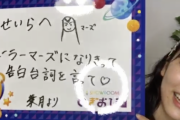 せいらへ
マーズ
セーラーマーズになりきって
告白台詞を言って♡
葉月より